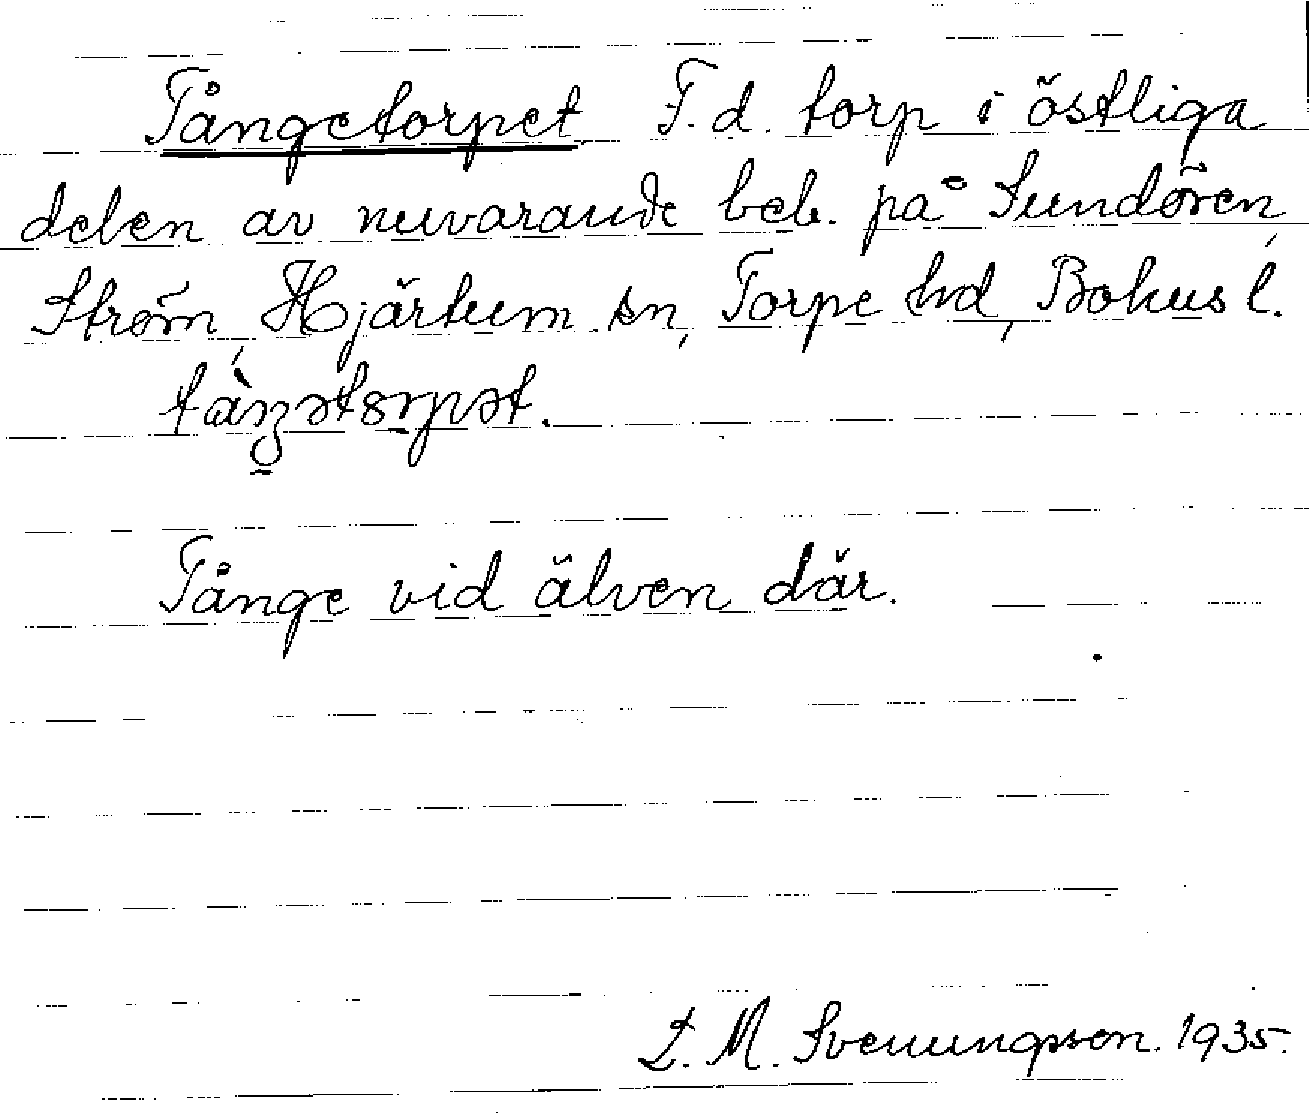 Tångetorpet F.d. torp i östliga
delen av nuvarande beb. på Sundören,
Ström, Hjärtum sn, Torpe hd, Bohus l.
Tånge vid älven där.
L. M. Svenungsson. 1935.